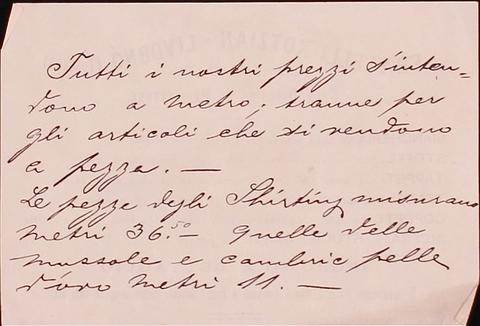 Tutti i nostri prezzi s'inten=
dono a metro; tranne per
gli articoli che si vendono
a pezza. —
Le pezze degli Shirting misurano
metri 36.50 — quelle delle
mussole e cambric pelle
d'oro metri 11. —